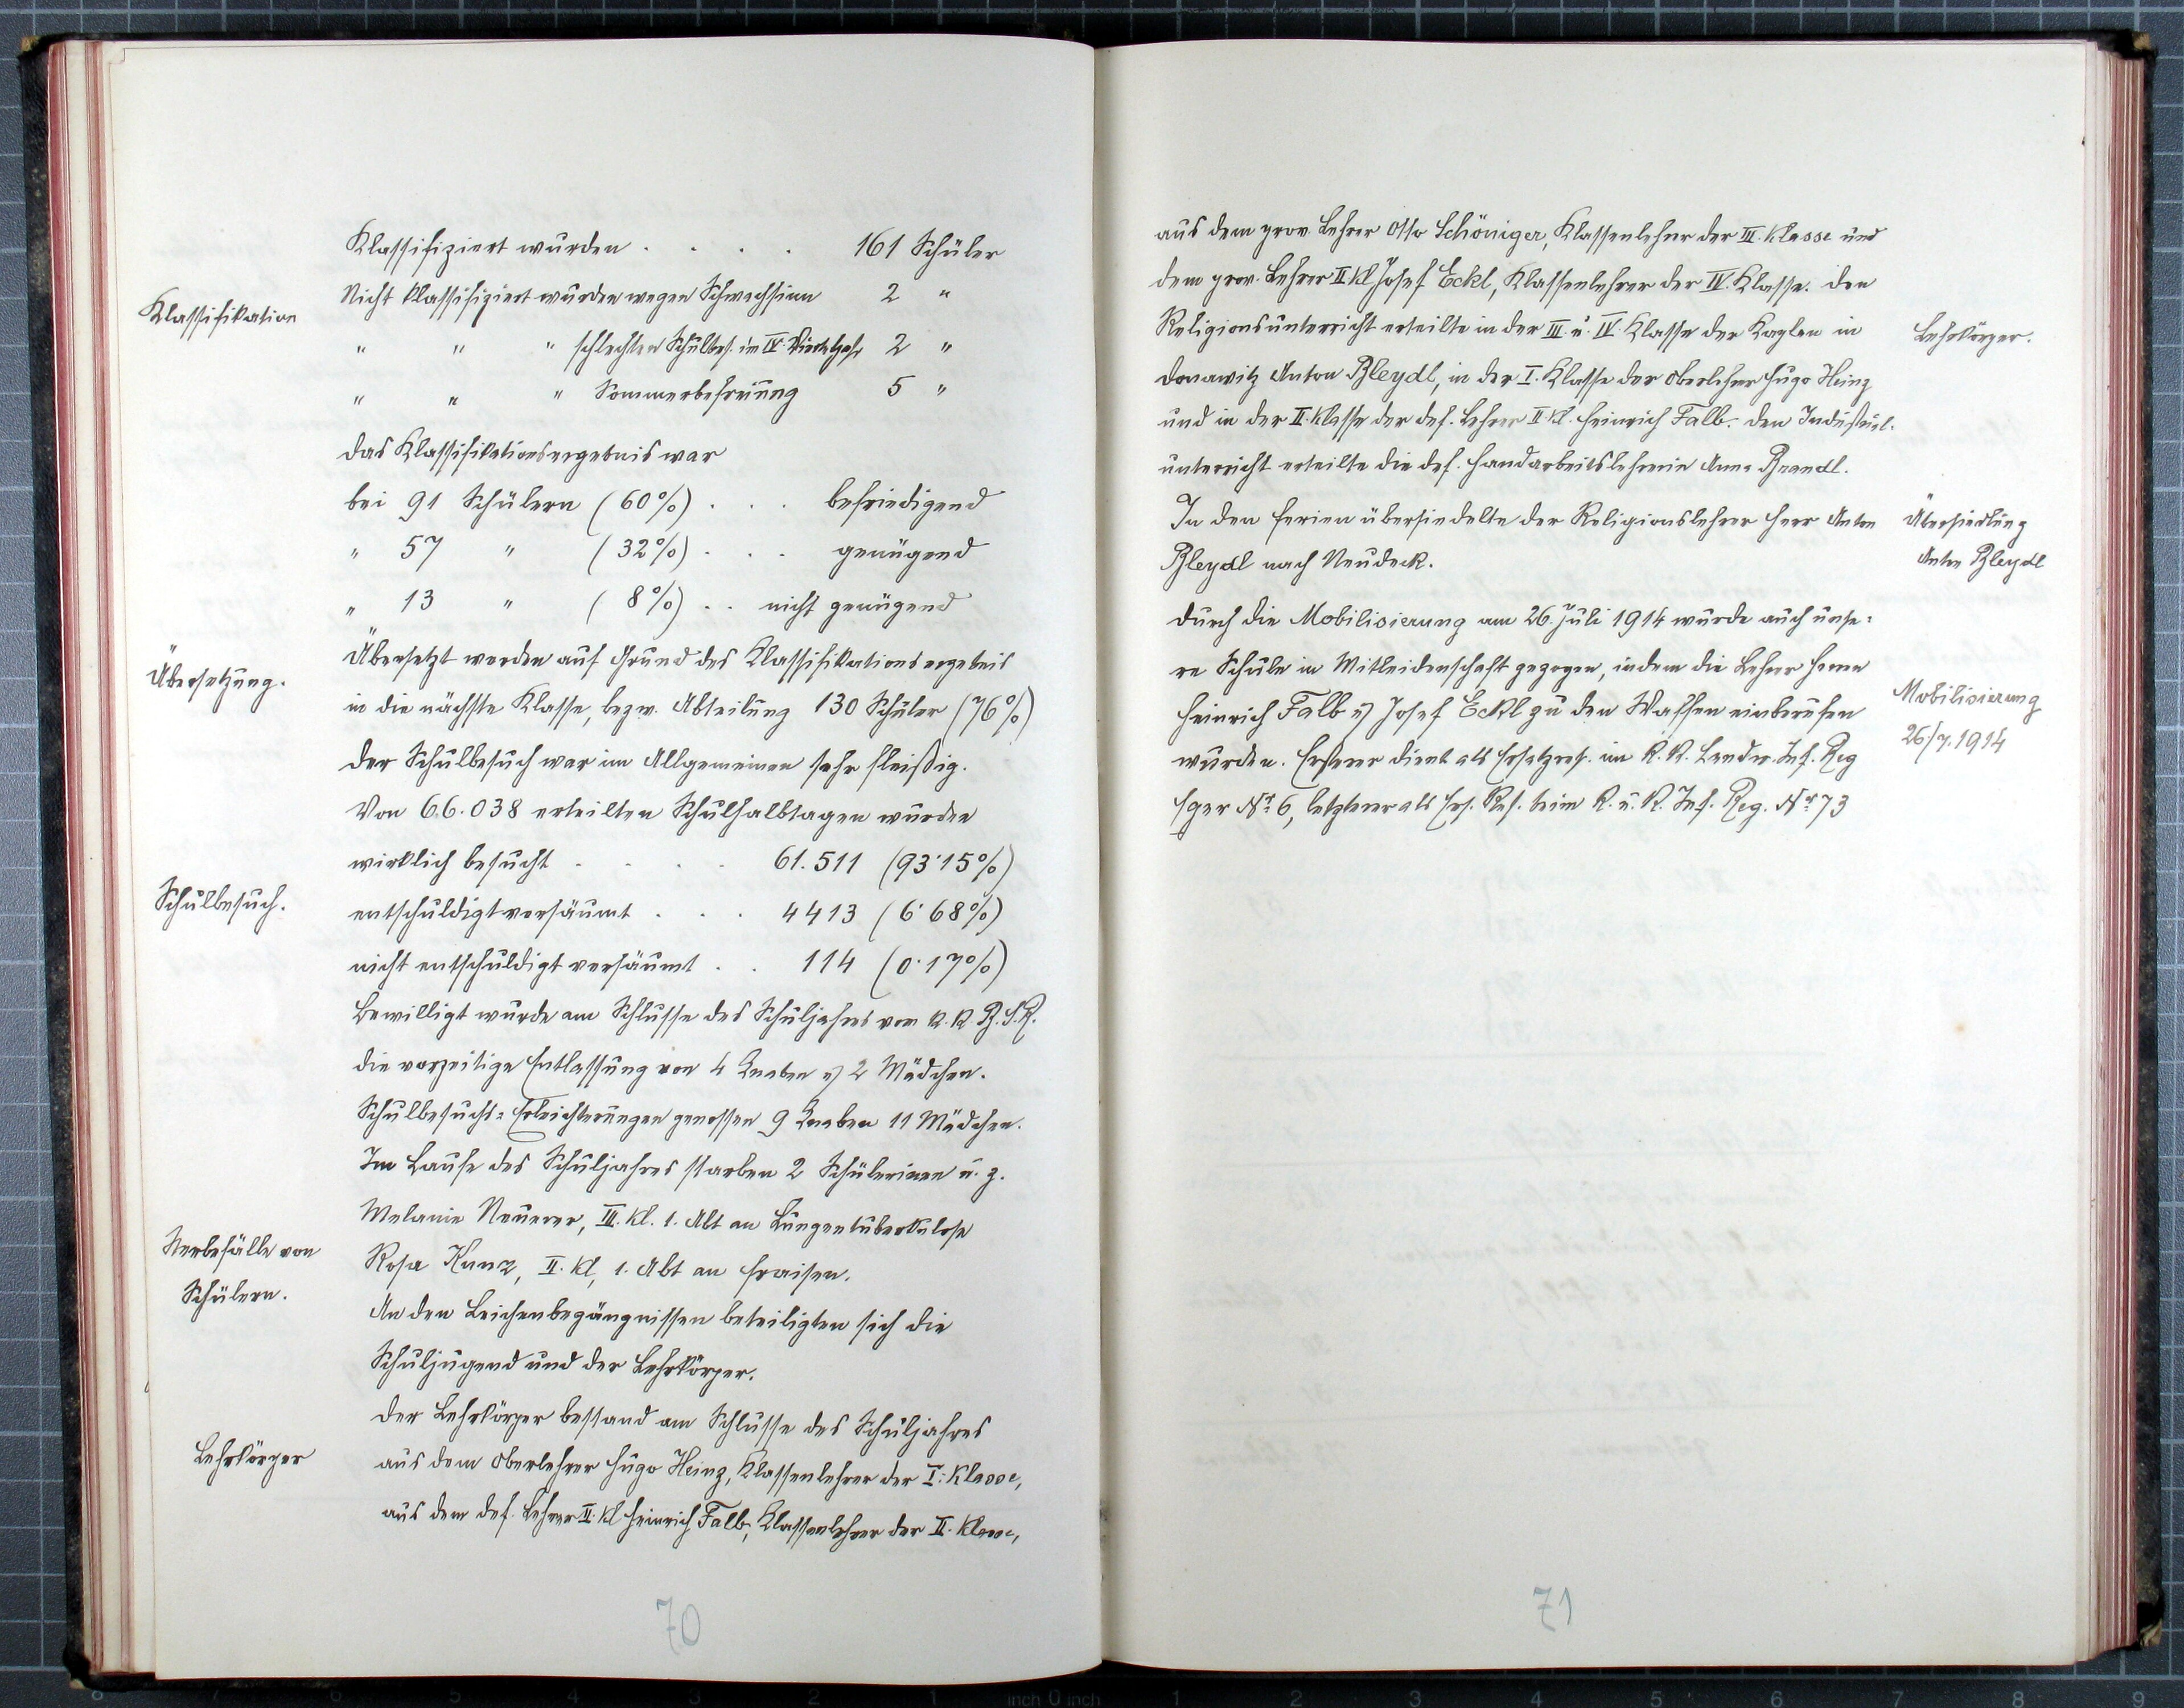 Klassifikation
Klassifiziert wurden . . . . 161 Schüler
Nicht klassifiziert wurden wegen Schwachsinn 2 "
" " " schlechten Schulbes. im IV. Vierteljahr 2 "
" " " Sommerbefreiung 5 "
Das Klassifikationsergebnis war
bei 91 Schülern (60%) . . . befriedigend
" 57 " (32%) . . . genügend
" 13 " (8%) . . nicht genügend
Übersetzung.
Übersetzt werden auf Grund des Klassifikationsergebnis
in die nächste Klasse, bezw. Abteilung 130 Schüler (76%)
Der Schulbesuch war im Allgemeinen sehr fleißig.
Von 66.038 erteilten Schulhalbtagen wurden
Schulbesuch.
wirklich besucht . . . . 61.511 (93·15%)
entschuldigt versäumt . . . 4413 (6·68%)
nicht entschuldigt versäumt . . 114 (0·17%)
Bewilligt wurde am Schlusse des Schuljahres vom k.k. B.S.R.
die vorzeitige Entlassung von 4 Knaben u 2 Mädchen.
Schulbesuchs=Erleichterungen genossen 9 Knaben 11 Mädchen.
Im Laufe des Schuljahres starben 2 Schülerinen u. z.
Sterbefälle von
Schülern.
Melanie Neuerer, III. Kl. 1. Abt an Lungentuberkulose
Rosa Kunz, II. Kl, 1. Abt an Fraisen.
An den Leichenbegängnissen beteiligten sich die
Schuljugend und der Lehrkörper.
Lehrkörper
Der Lehrkörper bestand am Schlusse des Schuljahres
aus dem Oberlehrer Hugo Heinz, Klassenlehrer der I. Klasse,
aus dem def. Lehrer II. Kl Heinrich Falb, Klassenlehrer der II. Klasse,
70
aus dem prov. Lehrer Otto Schöniger, Klassenlehrer der III. Klasse und
dem prov. Lehrer II Kl Josef Eckl, Klassenlehrer der IV. Klasse. Den
Religionsunterricht erteilte in der III u. IV. Klasse der Kaplan in
Lehrkörper.
Donawitz Anton Bleydl, in der I. Klasse der Oberlehrer Hugo Heinz
und in der II. Klasse der def. Lehrer II Kl. Heinrich Falb. Den Industriel-
unterricht erteilte die def. Handarbeitslehrerin Anna Brandl.
In den Ferien übersiedelte der Religionslehrer Herr Anton
Bleydl nach Neudeck.
Übersiedlung
Anton Bleydl
Durch die Mobilisierung am 26. Juli 1914 wurde auch unse=
re Schule in Mitleidenschaft gezogen, indem die Lehrer Herrn
Heinrich Falb u Josef Eckl zu den Waffen einberufen
wurden. Ersterer dient als Ersatzres. im K.K. Landw. Inf. Reg
Eger Nr. 6, letzterer als Ers. Res. beim K. u. K. Inf. Reg. Nr. 73
Mobilisierung
26/7. 1914
71